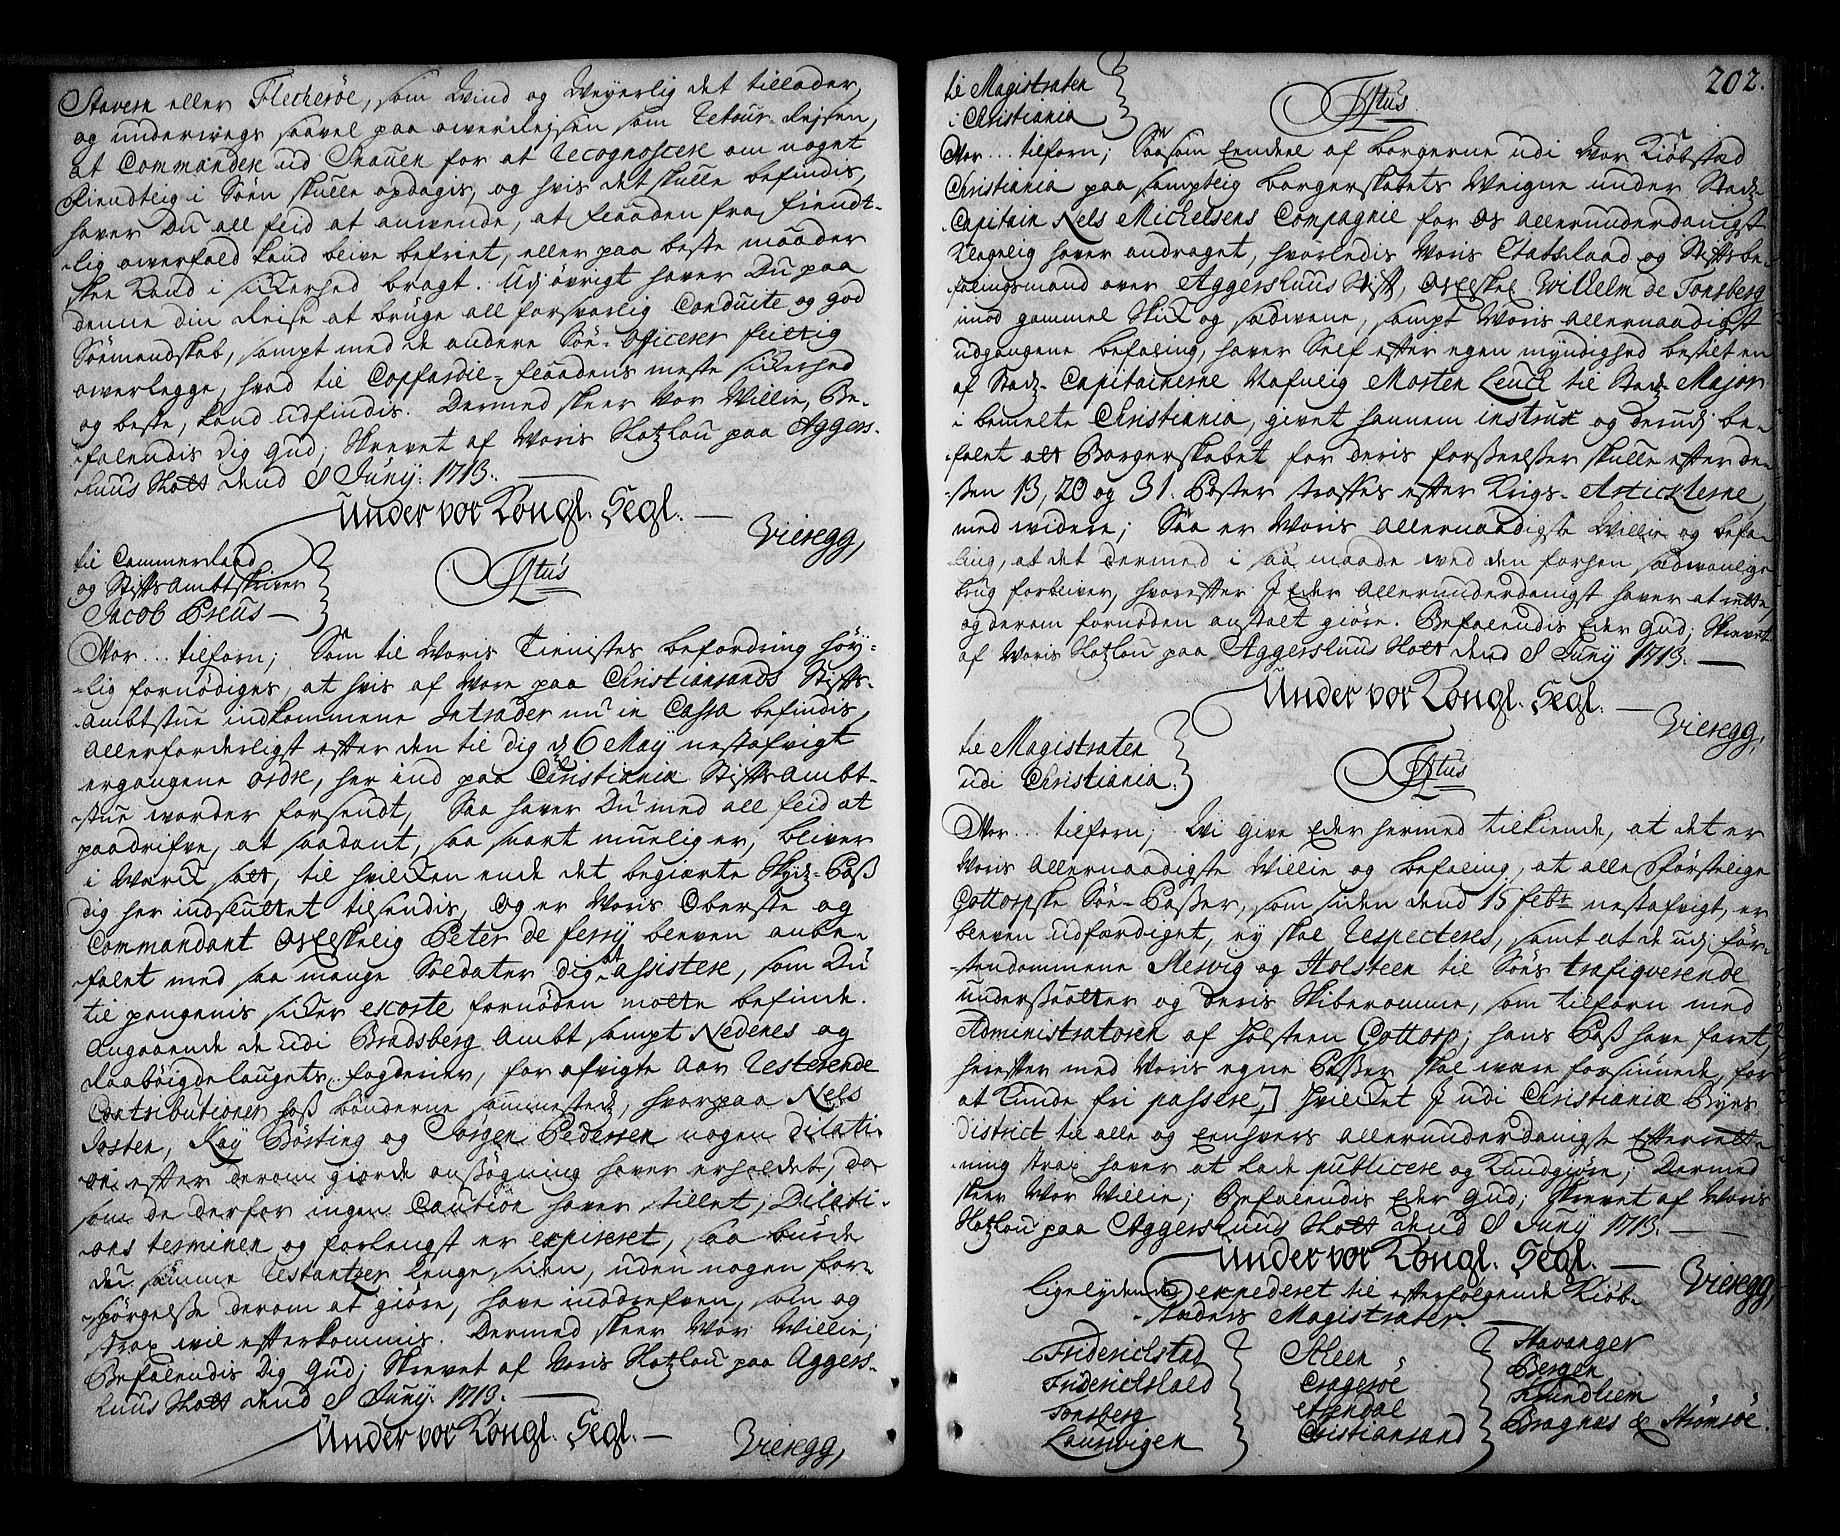 Stavern eller Flecherøe, som Wind og Weyerlig det tillader,
og underweygs saavel paa owerrejsen som Retour-Rejsen,
at Commandere ud Snauen for at Recognoscere om noget
Fiendtlig i Søen skulle opdagis, og hvis det skulle befindis,
haver Du all fliid at anvende, at flaaden fra fiendt-
-lig owerfald kand blive befriet, eller paa beste maader
skee kand i sikerhed bragt. Udj øvrigt haver Du paa
denne din Reise at bruge all forsvarlig Conduite og god
Søemandskab, sampt med de andere Søe-Officerer flittig
owerlegge, hvad til Copfardie-flaadens meste sikerhed
og beste, kand udfindis. Dermed skeer Vor Willie, Be-
-falendis Dig Gud; Skrevet af Voris Slotzlou paa Aggers-
-huus Slott dend 8 Junij: 1713.
Under vor Kongl. Segl.
Vieregg,
til Cammerraad
og StiftsAmbtskriver
Jacob Preus
F 4tus
Vor ... tilforn; Som til Voris Tienistes befordring høy-
-lig fornødiges, at hvis af Vore paa Christiansands Stifts-
Ambtstue indkommene Intrader nu in Cassa befindis,
allerforderligst efter den til dig d 6 Maij nestafvigt
ergangene ordre, her ind paa Christiania StiftsAmbt-
stue worder forsendt, Saa haver Du med all fliid at
paadrifve, at saadant, saa snart mueligt er, bliver
i Werck satt, til hvilcken ende det begierte Skyds-Pass
dig her indsluttet tilsendis, og er Voris Oberste og
Commandant Os Elskelig Peter de Ferry bleven anbe-
-falet med saa mange Soldater dig at assistere, som Du
til pengenis sikker escorte fornøden motte befinde.
Angaaende de udi Bradsberg Ambt, sampt Nedenes og
Raabøigdelaugets fogderier, for afvigte Aar Resterende
Contributioner hos bønderne sammesteds, hvorpaa Nels
Josten, Kay Børting og Jørgen Pedersen nogen dilati-
on efter derom giorde ansøgning haver erholdet, da
som de derfor ingen Caution haver stillet, Dilati-
ons terminen og forlengst er expireret, saa burde
du samme Restantzer lenge siden, uden nogen for-
spørgelsse derom at giøre, have inddrefven, som og
strax wil efterkommis. Dermed skeer Vor Willie,
Befalendis Dig Gud; Skrevet af Voris Slotzlou paa Aggers-
-huus Slott dend 8 Junij: 1713.
Under vor Kongl. Segl.
Vieregg,
202.
til Magistraten
i Christiania
F 4tus
Vor ... tilforn; Saasom Eendeel af borgerne udi Vor Kiøbstad
Christiania paa samptlig borgerskabets Weigne under Stadz-
Capitain Nels Michelsens Compagnie for Os allerunderdanigst
klagelig haver andraget, hvorledis Voris Etatsraad og Stiftsbe-
falingsmand over Aggershuus Stift, Os Elskel. Wilhelm de Tonsberg
imod gammel skik og sædwene, sampt Voris allernaadigst
udgangene befaling, haver Self efter egen myndighed bestilt en
af Stadz-Capitainerne Nafnlig Morten Leuch til Stadz-Major
i bemelte Christiania, givet hannem instrux og derudj be-
falet att Borgerskabet for deris forseelsser skulle efter de-
ssen 13, 20 og 31. Poster straffes efter Krigs-Articklerne,
med widere; Saa er Voris allernaadigste Willie og befa-
ling, at det dermed i saa maade wed den forhen sædvanlige
brug forbliver, hvorefter I Eder allerunderdanigst haver at rette,
og derom fornøden anstalt giøre. Befalendis Eder Gud; Skrevet
af Voris Slotzlou paa Aggershuus Slott dend 8 Junij 1713.
Under vor Kongl. Segl.
Vieregg,
til Magistraten
udi Christiania
F 4tus
Vor ... tilforn; Wi give Eder hermed tilkiende, at det er
Voris allernaadigste Willie og befaling, at alle Førstelige
Gottorpske Søe-Passer, som siden dend 15 Febr. nestafvigt, er
bleven udfærdiget, ey skal Respecteres, samt at de udj før-
stendommene Slesvig og Holsteen til Søes trafiqverende
undersaatter og deris Skiberomme, som tilforn med
Administratoren af Holsteen Gottorp, hans Pass have faret,
herefter med Voris egne Passer skal ware forsiunede, for
at kunde fri passere, hvilcket I udi Christianiæ Byes
district til alle og Eenhvers allerunderdanigste Efterret-
ning strax haver at lade publicere og kundgiøre; Dermed
skeer Vor Willie; Befalendis Eder Gud; Skrevet af Voris
Slotzlou paa Aggershuus Slott dend 8 Junij 1713.
Under vor Kongl. Segl.
Vieregg,
Ligelydende expederet til efterfølgende Kiøb-
stæders Magistrater.
Friderichstad
Friderichshald
Tonsberg
Laurwigen
Skeen
Cragerøe
Arendal
Christiansand
Stavanger
Bergen
Trundhiem
Bragnæs & Strømsøe.